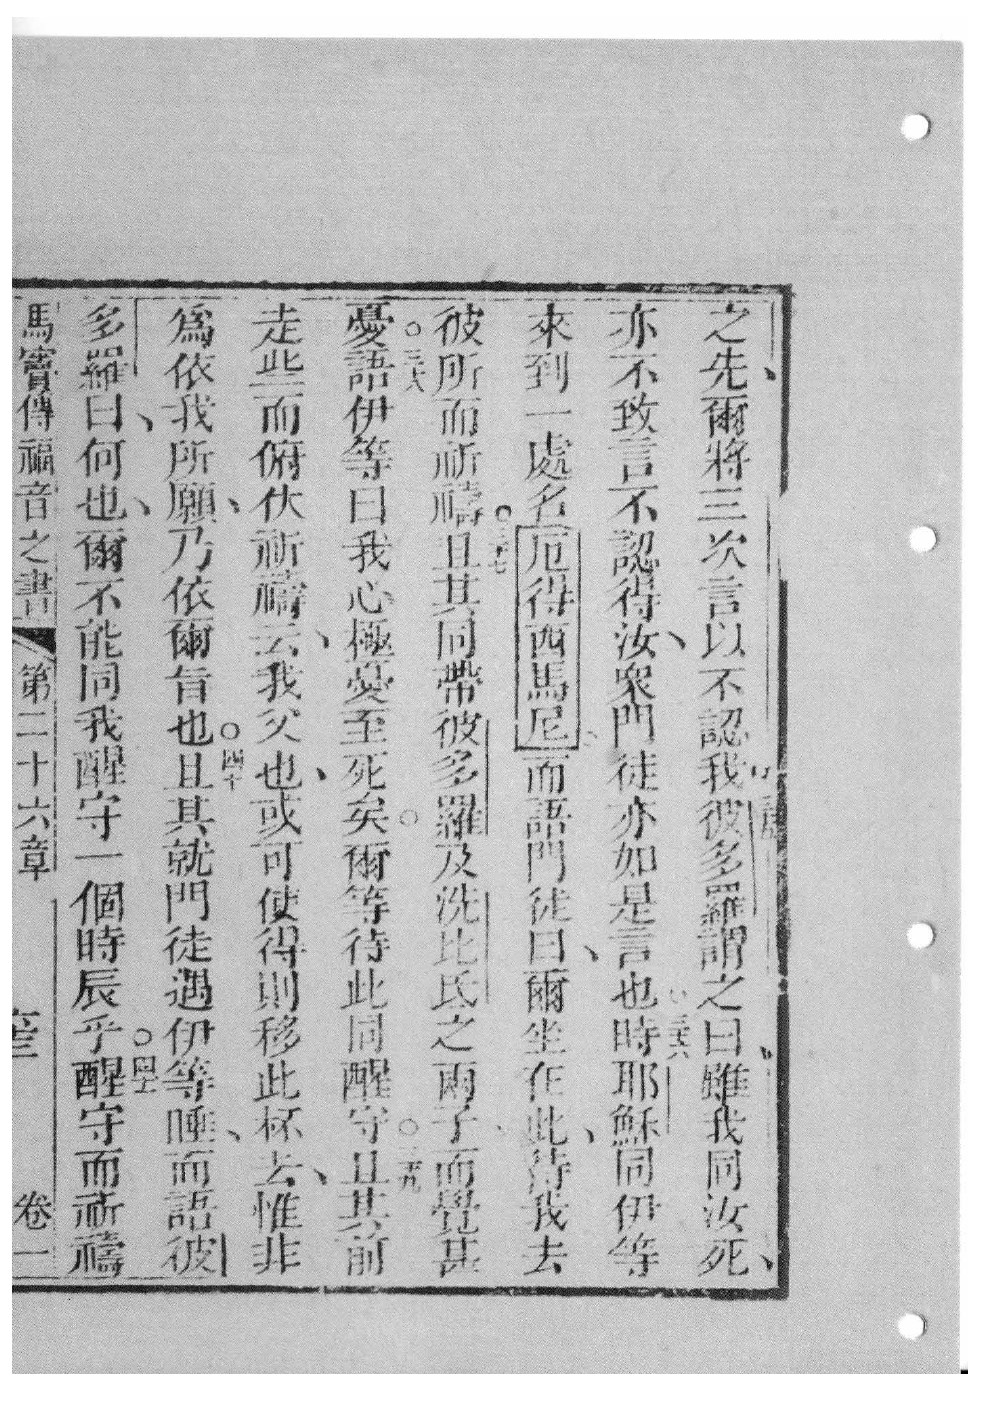 之先爾將三次言以不認我彼多羅謂之曰雖我同汝死
亦不致言不認得汝衆門徒亦如是言也三六時耶穌同伊等
來到一處名厄得西馬尼而語門徒曰爾坐在此待我去
彼所而祈禱三七且其同帶彼多羅及洗比氏之兩子而覺甚
憂三八語伊等曰我心極憂至死矣爾等待此同醒守三九且其前
走些而俯伏祈禱云我父也或可使得則移此杯去惟非
為依我所願乃依爾旨也四十且其就門徒遇伊等睡而語彼
多羅曰何也爾不能同我醒守一個時辰乎四十一醒守而祈禱
馬竇傳福音之書 第二十六章 卷一